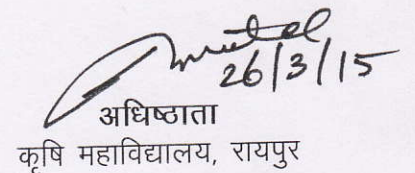 26/3/15
अधिष्ठाता
कृषि महाविद्यालय, रायपुर